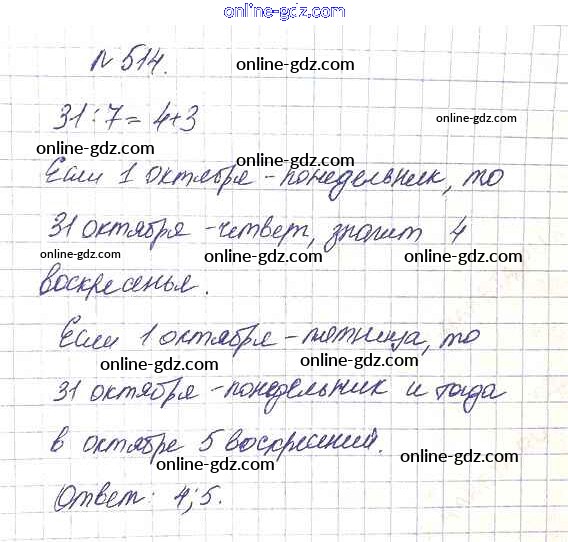 www.online-gdz.com
N 514.
online-gdz.com
31 : 7 = 4+3
online-gdz.com
online-gdz.com
online-gdz.com
Если 1 октября - понедельник, то
online-gdz.com
31 октября - четверг, значит 4
online-gdz.com
online-gdz.com
воскресенья.
online-gdz.com
Если 1 октября - пятница, то
online-gdz.com
online-gdz.com
31 октября - понедельник и тогда
online-gdz.com
в октябре 5 воскресений.
online-gdz.com
online-gdz.com
Ответ: 4; 5.
online-gdz.com